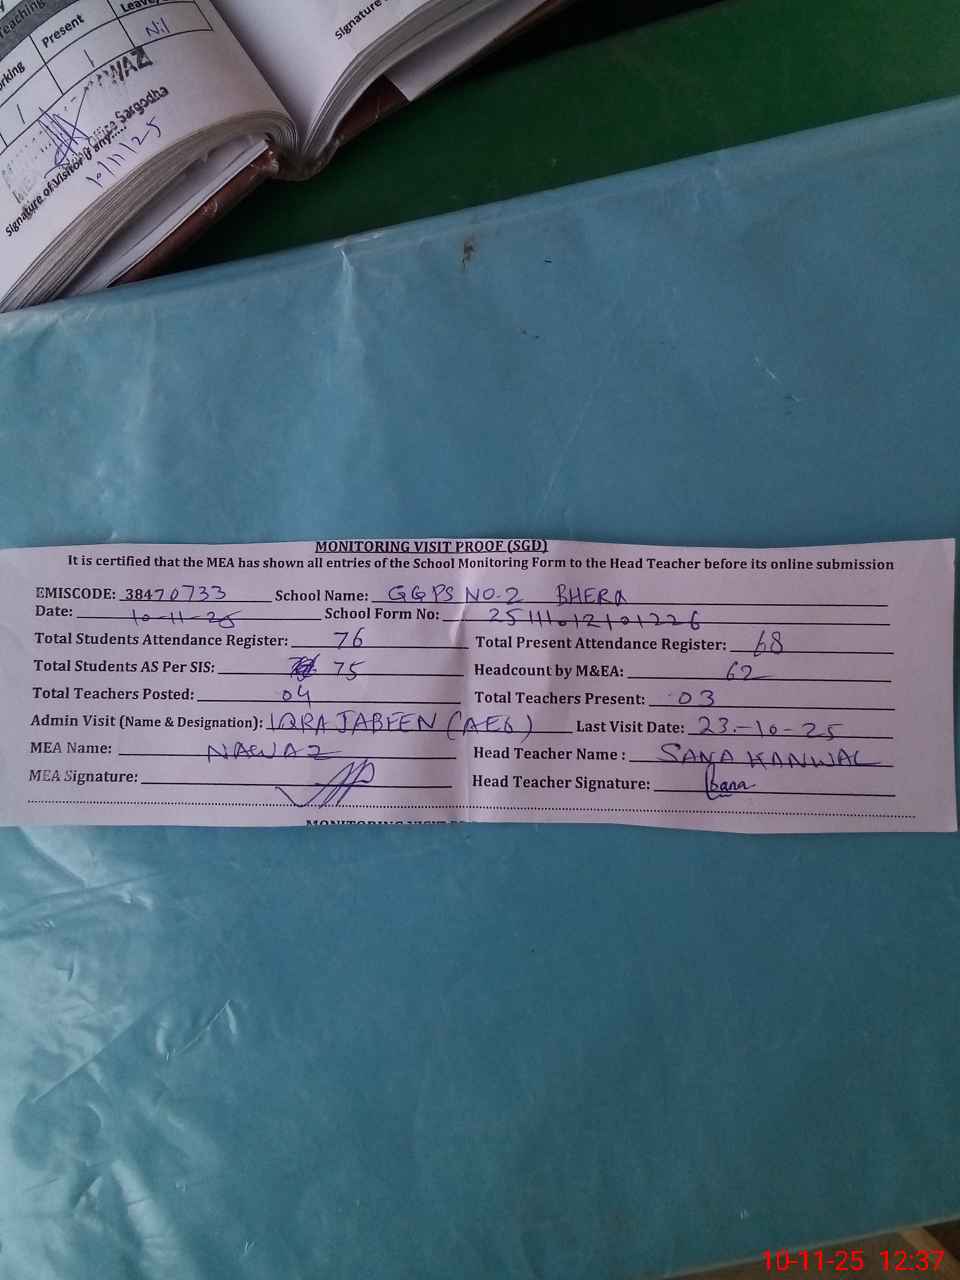 Teaching
Present
Leave
rking
1
1
Nil
WAZ
Office Sargodha
Signature of Visitor if any.....
10/11/25
Signature
MONITORING VISIT PROOF (SGD)
It is certified that the MEA has shown all entries of the School Monitoring Form to the Head Teacher before its online submission
EMISCODE: 38470733 School Name: GGPS NO.2 BHERA
Date: 10-11-25 School Form No: 25111012101226
Total Students Attendance Register: 76 Total Present Attendance Register: 68
Total Students AS Per SIS: 75 Headcount by M&EA: 62
Total Teachers Posted: 04 Total Teachers Present: 03
Admin Visit (Name & Designation): IQRA JABEEN (AEO) Last Visit Date: 23-10-25
MEA Name: NAWAZ Head Teacher Name : SANA KANWAL
MEA Signature: Head Teacher Signature: Sana
MONITORING VISIT
10-11-25 12:37